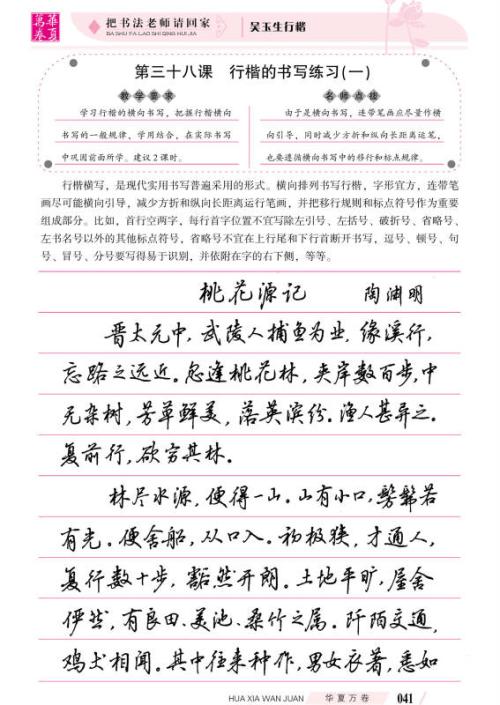 華夏萬卷
把书法老师请回家
BA SHU FA LAO SHI QING HUI JIA
吴玉生行楷
第三十八课 行楷的书写练习(一)
教学要求
学习行楷的横向书写，把握行楷横向
书写的一般规律、学用结合，在实际书写
中巩固前面所学。建议2课时。
名师点拨
由于是横向书写，连带笔画应尽量作横
向引导，同时减少方折和纵向长距离运笔，
也要遵循横向书写中的移行和标点规律。
行楷横写，是现代实用书写普遍采用的形式。横向排列书写行楷，字形宜方，连带笔
画尽可能横向引导，减少方折和纵向长距离运行笔画，并把移行规则和标点符号作为重要
组成部分。比如，首行空两字，每行首字位置不宜写除左引号、左括号、破折号、省略号、
左书名号以外的其他标点符号，省略号不宜在上行尾和下行首断开书写，逗号、顿号、句
号、冒号、分号要写得易于识别，并依附在字的右下侧，等等。
桃花源记 陶渊明
晋太元中，武陵人捕鱼为业，缘溪行，
忘路之远近。忽逢桃花林，夹岸数百步，中
无杂树，芳草鲜美，落英缤纷。渔人甚异之。
复前行，欲穷其林。
林尽水源，便得一山。山有小口，髣髴若
有光。便舍船，从口入。初极狭，才通人，
复行数十步，豁然开朗。土地平旷，屋舍
俨然，有良田、美池、桑竹之属。阡陌交通，
鸡犬相闻。其中往来种作，男女衣著，悉如
HUA XIA WAN JUAN
华夏万卷
041